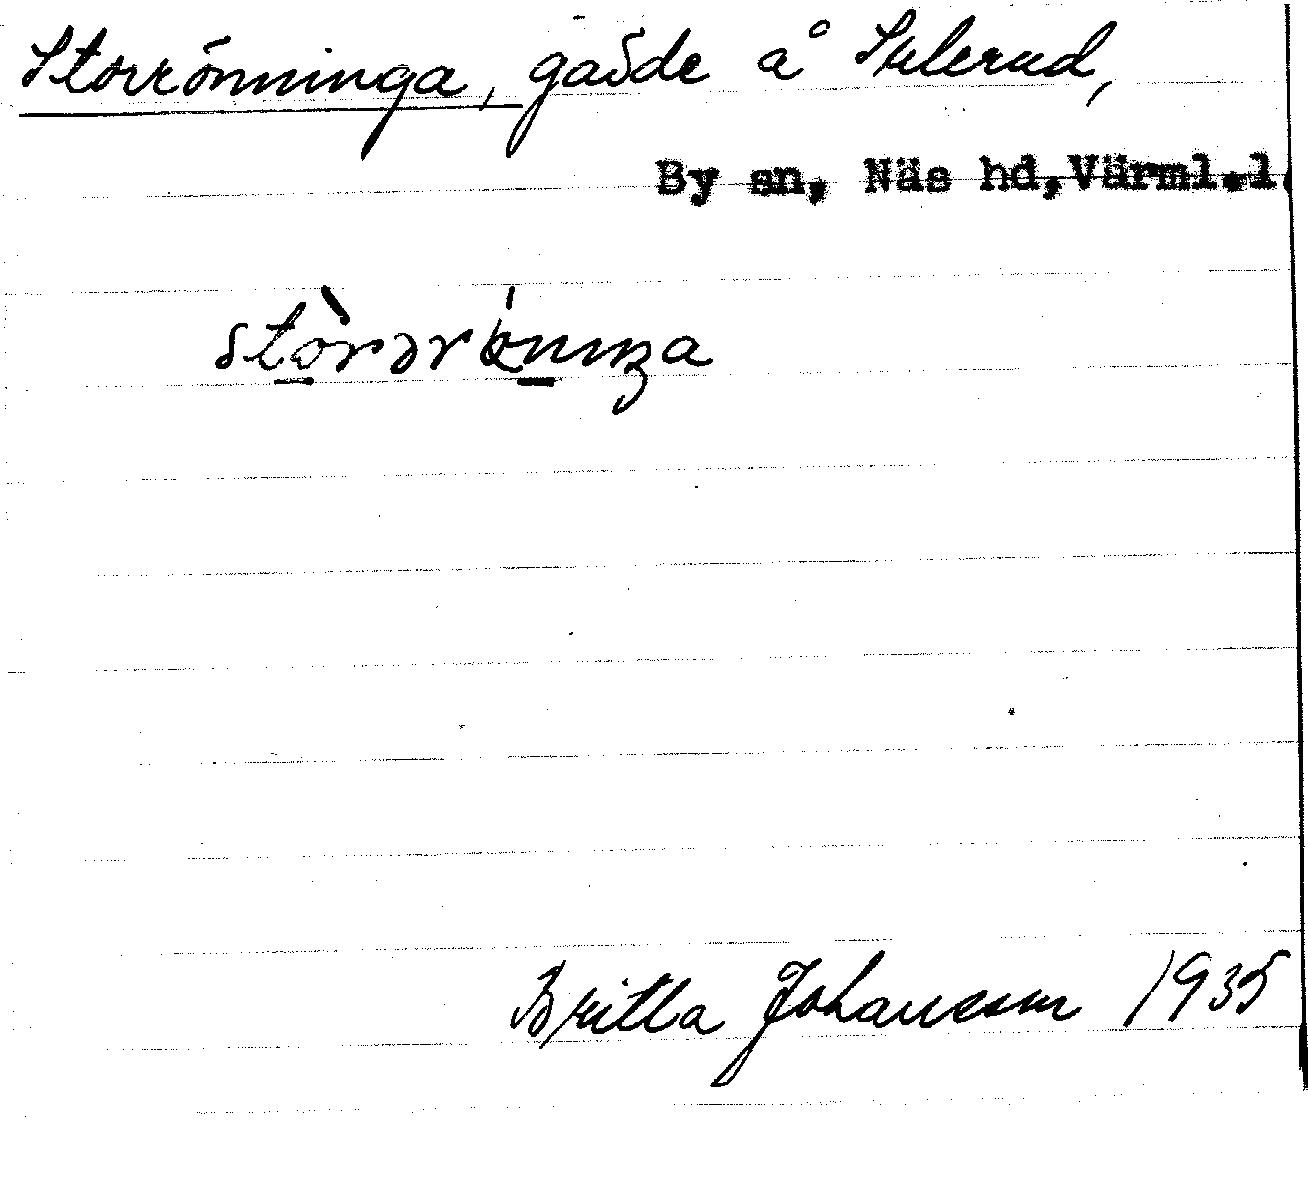 Storrönninga, gaðde å Sulerud,
By sn, Näs hd,Värml.l.
Britta Johansson 1935